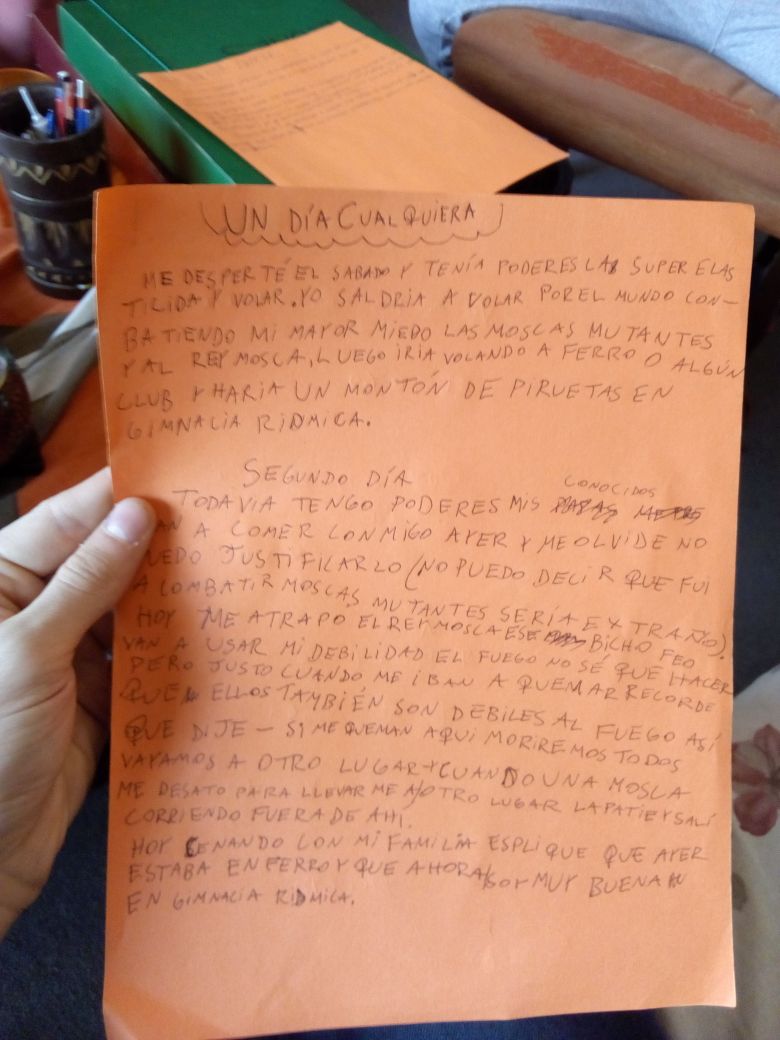 UN DÍA CUALQUIERA
ME DESPERTÉ EL SABADO Y TENÍA PODERES LA SUPER ELAS
TICIDA Y VOLAR. YO SALDRIA A VOLAR POR EL MUNDO CON-
BATIENDO MI MAYOR MIEDO LAS MOSCAS MUTANTES
Y AL REY MOSCA, LUEGO IRIA VOLANDO A FERRO O ALGÚN
CLUB Y HARIA UN MONTÓN DE PIRUETAS EN
GIMNACIA RIDMICA.
SEGUNDO DÍA
TODAVIA TENGO PODERES MIS CONOCIDOS
VAN A COMER CONMIGO AYER Y ME OLVIDE NO
PUEDO JUSTIFICARLO (NO PUEDO DECIR QUE FUI
A COMBATIR MOSCAS MUTANTES SERÍA EXTRAÑO).
HOY ME ATRAPO EL REY MOSCA ESE BICHO FEO
VAN A USAR MI DEBILIDAD EL FUEGO NO SÉ QUE HACER
PERO JUSTO CUANDO ME IBAN A QUEMAR RECORDE
QUE ELLOS TAMBIÉN SON DEBILES AL FUEGO ASÍ
QUE DIJE - SI ME QUEMAN AQUI MORIREMOS TODOS
VAYAMOS A OTRO LUGAR Y CUANDO UNA MOSCA
ME DESATO PARA LLEVARME A OTRO LUGAR LA PATIE Y SALÍ
CORRIENDO FUERA DE AHI.
HOY CENANDO CON MI FAMILIA ESPLIQUE QUE AYER
ESTABA EN FERRO Y QUE AHORA SOY MUY BUENA
EN GIMNACIA RIDMICA.